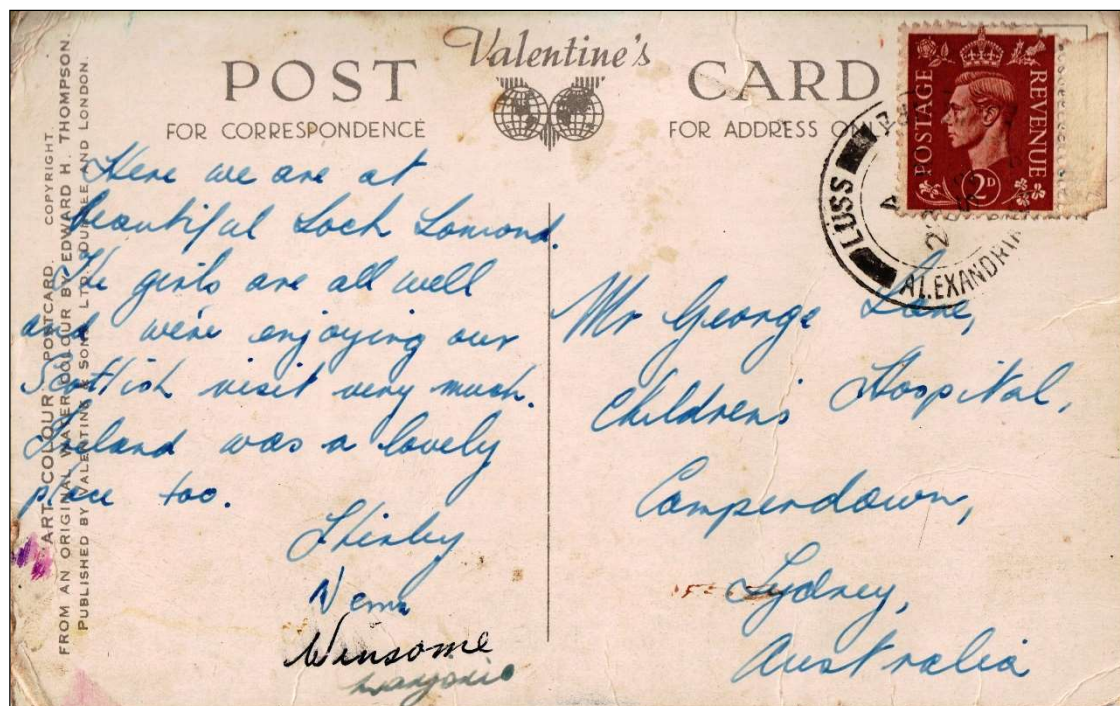 Valentine's
POST CARD
FOR CORRESPONDENCE
FOR ADDRESS ONLY
ART COLOUR POSTCARD. COPYRIGHT
FROM AN ORIGINAL WATER-COLOUR BY EDWARD H. THOMPSON.
PUBLISHED BY VALENTINE & SONS, LTD. DUNDEE AND LONDON.
Here we are at
beautiful Loch Lomond.
The girls are all well
and we're enjoying our
Scottish visit very much.
Ireland was a lovely
place too.
Shirley
Winsome
Marjorie
POSTAGE
REVENUE
2D
LUSS
ALEXANDRIA
Mr George Lane,
Children's Hospital,
Camperdown,
Sydney,
Australia